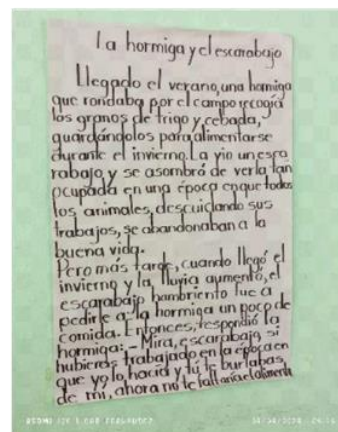 La hormiga y el escarabajo
Llegado el verano, una hormiga
que rondaba por el campo recogía
los granos de trigo y cebada,
guardándolos para alimentarse
durante el invierno. La vio un esca
rabajo y se asombró de verla tan
ocupada en una época en que todos
los animales, descuidando sus
trabajos, se abandonaban a la
buena vida.
Pero más tarde, cuando llegó el
invierno y la lluvia aumentó, el
escarabajo hambriento fue a
pedirle a la hormiga un poco de
comida. Entonces, respondió la
hormiga: - Mira, escarabajo, si
hubieras trabajado en la época en
que yo lo hacía y tú te burlabas,
de mi, ahora no te faltaría el alimento